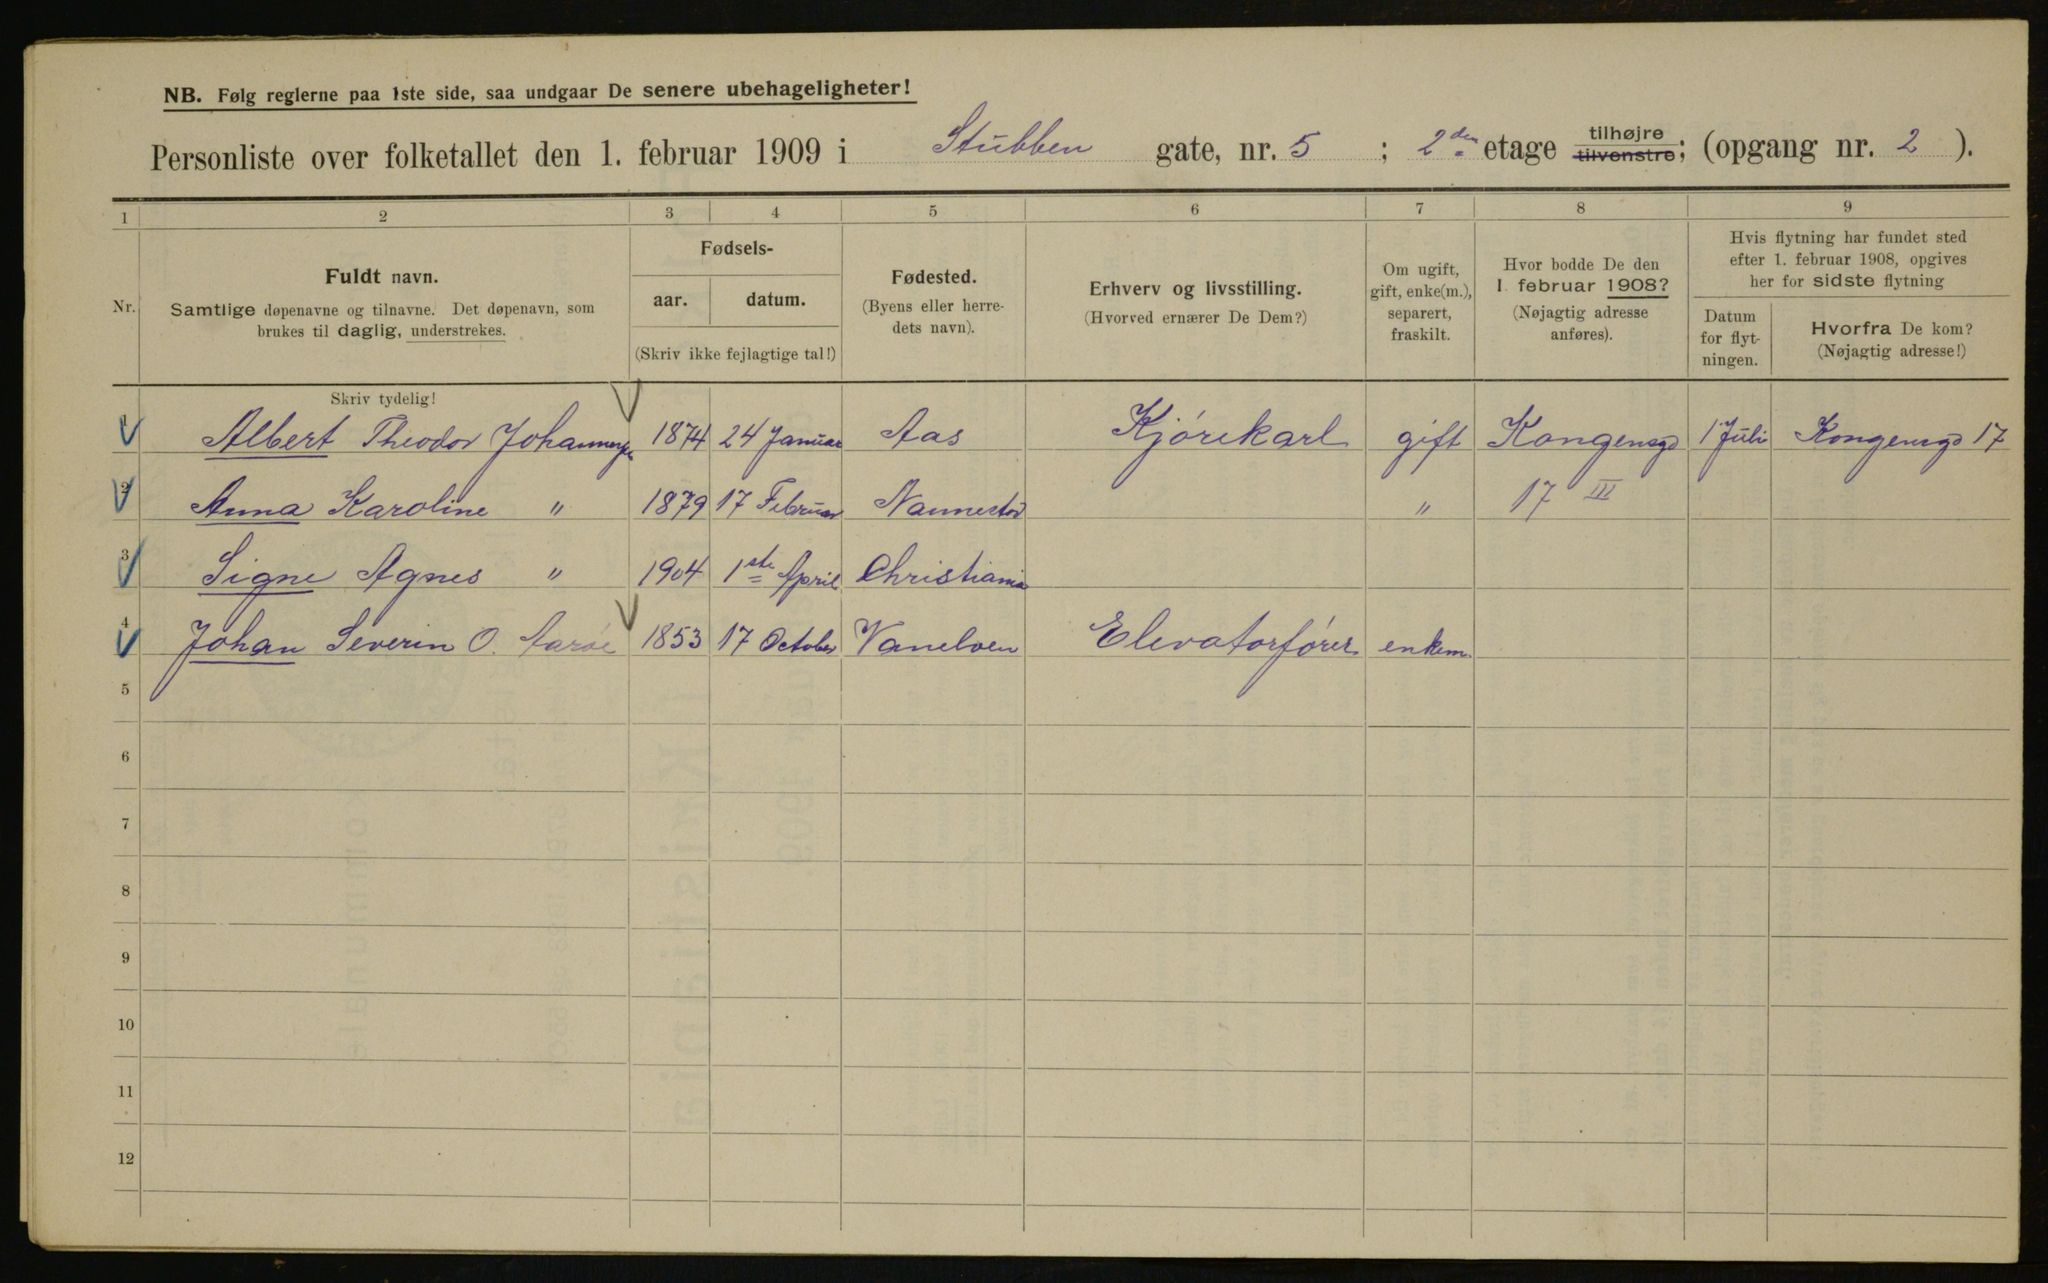 NB. Følg reglerne paa 1ste side, saa undgaar De senere ubehageligheter!
Personliste over folketallet den 1. februar 1909 i Stubben gate, nr. 5 ; 2den etage tilhøjre tilvenstre; (opgang nr. 2 ).
1 2 3 4 5 6 7 8 9
Nr.
Fuldt navn.
Samtlige døpenavne og tilnavne. Det døpenavn, som
brukes til daglig, understrekes.
Fødsels-
aar. datum.
(Skriv ikke fejlagtige tal!)
Fødested.
(Byens eller herre-
dets navn).
Erhverv og livsstilling.
(Hvorved ernærer De Dem?)
Om ugift,
gift, enke(m.),
separert,
fraskilt.
Hvor bodde De den
1. februar 1908?
(Nøjagtig adresse
anføres).
Hvis flytning har fundet sted
efter 1. februar 1908, opgives
her for sidste flytning
Datum
for flyt-
ningen.
Hvorfra De kom?
(Nøjagtig adresse!)
Skriv tydelig!
1 Albert Theodor Johannesen 1874 24 Januar Aas Kjörekarl gift Kongensgd 1 Juli Kongensgd 17
2 Anna Karoline " 1879 17 Februar Nannestad " 17 III
3 Signe Agnes " 1904 1ste April Christiania
4 Johan Severin O. Aaröe 1853 17 October Vanelven Elevatorförer enkem.
5
6
7
8
9
10
11
12